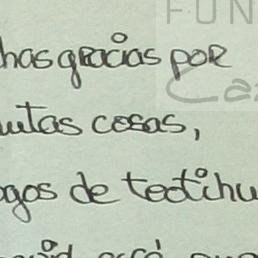 FUN
has gracias por
Ca
utas cosas,
gos de teotihu